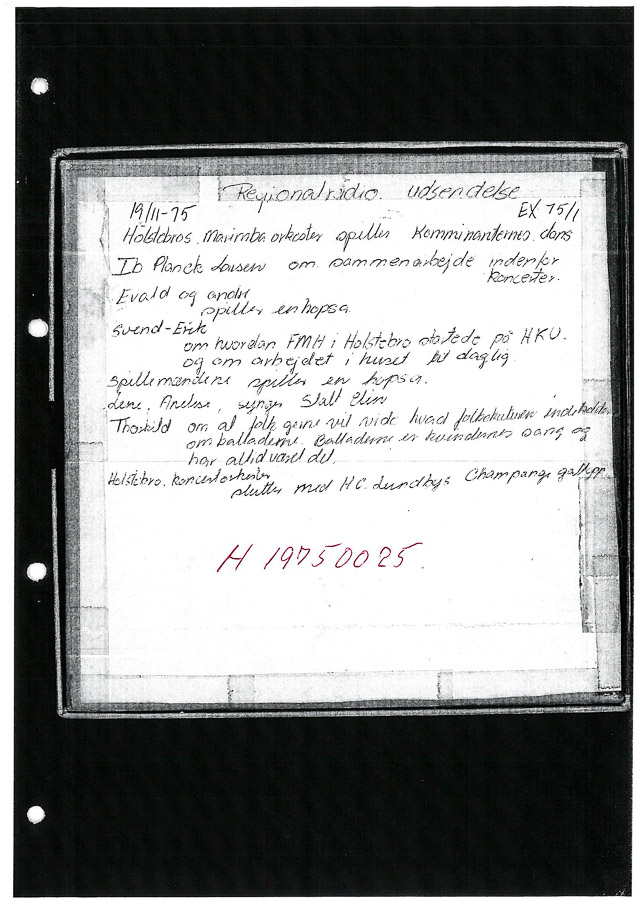 Regionalradio. udsendelse
19/11-75 EX 75/1
Holstebros. Marimba orkester spiller Komminanternes. dans
Ib Planck Larsen om sammenarbejde indenfor
koncerter.
Evald og andre
spiller en hopsa.
Svend-Erik
om hvordan FMH i Holstebro startede på HKU.
og om arbejdet i huset til daglig.
Spillemændene spiller en hopsa.
Lene, Anelise, synger Stalt Elin
Thorkild om at folk gerne vil vide hvad folkekulturen
om balladerne. Balladerne er kvindernes sang og
har altid været det.
Holstebro. koncertorkester
slutter med H.C. Lundbys Champange gallopp
H 19750025.